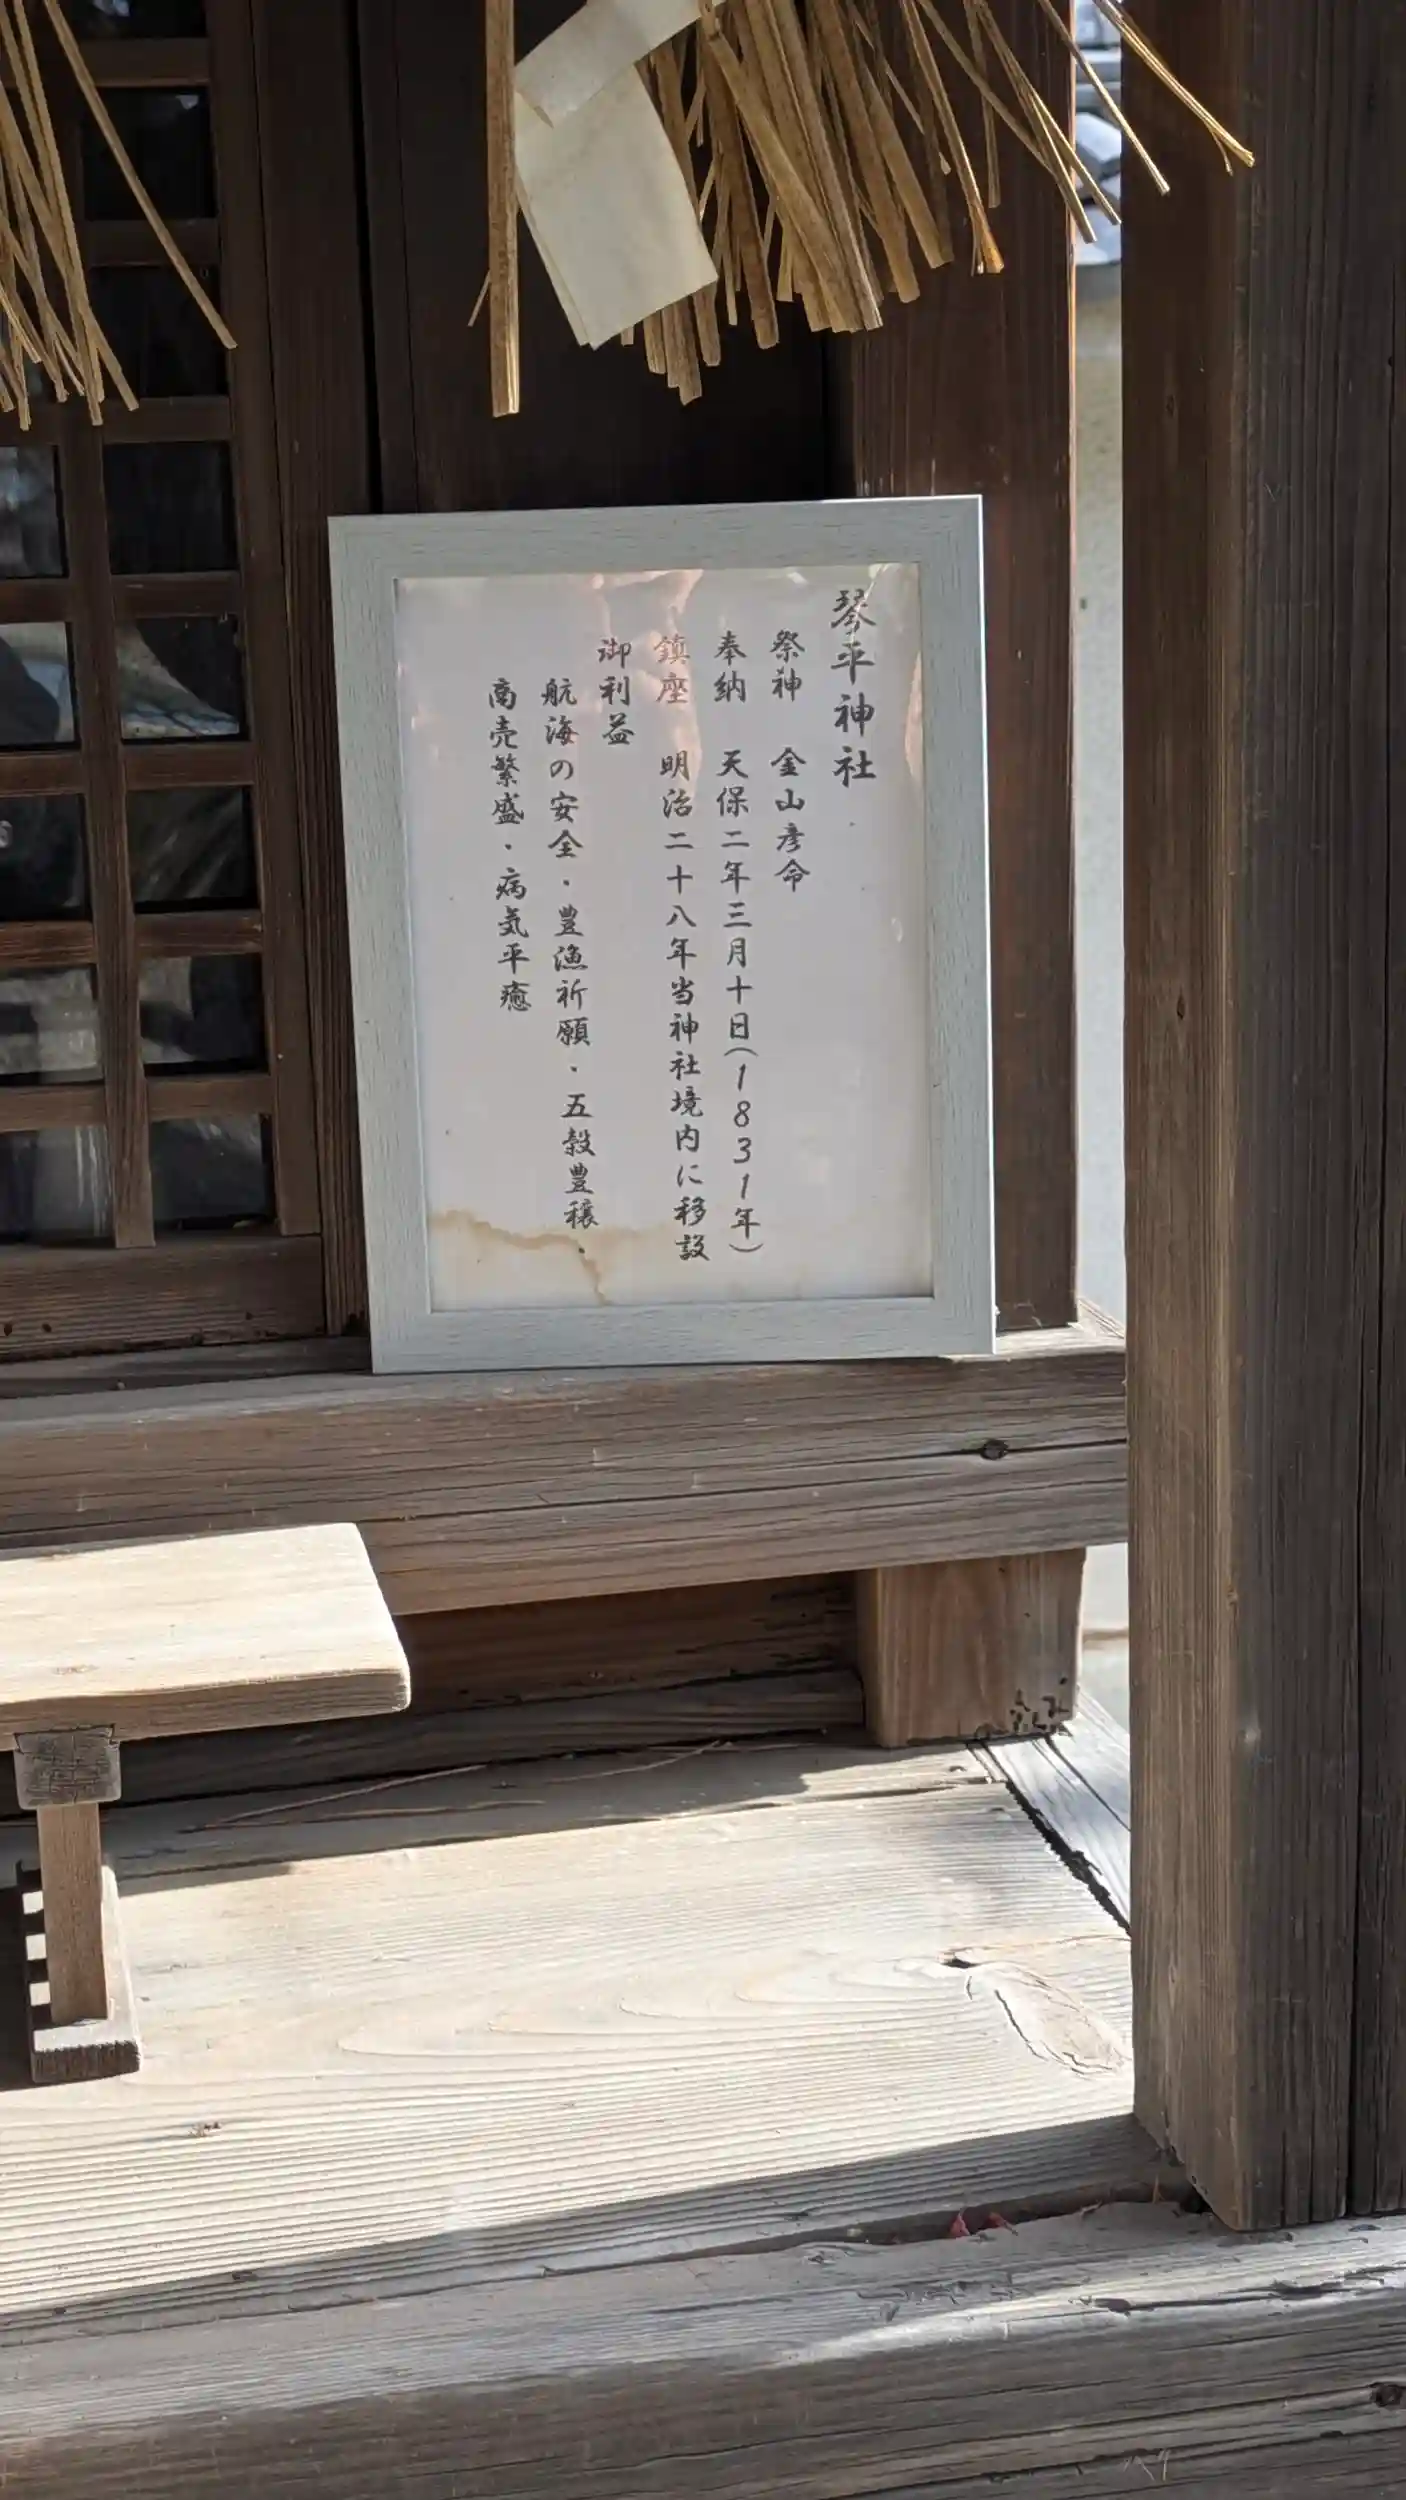 琴平神社
祭神 金山彦命
奉納 天保二年三月十日(1831年)
鎮座 明治二十八年当神社境内に移設
御利益
航海の安全・豊漁祈願・五穀豊穣・
商売繁盛・病気平癒